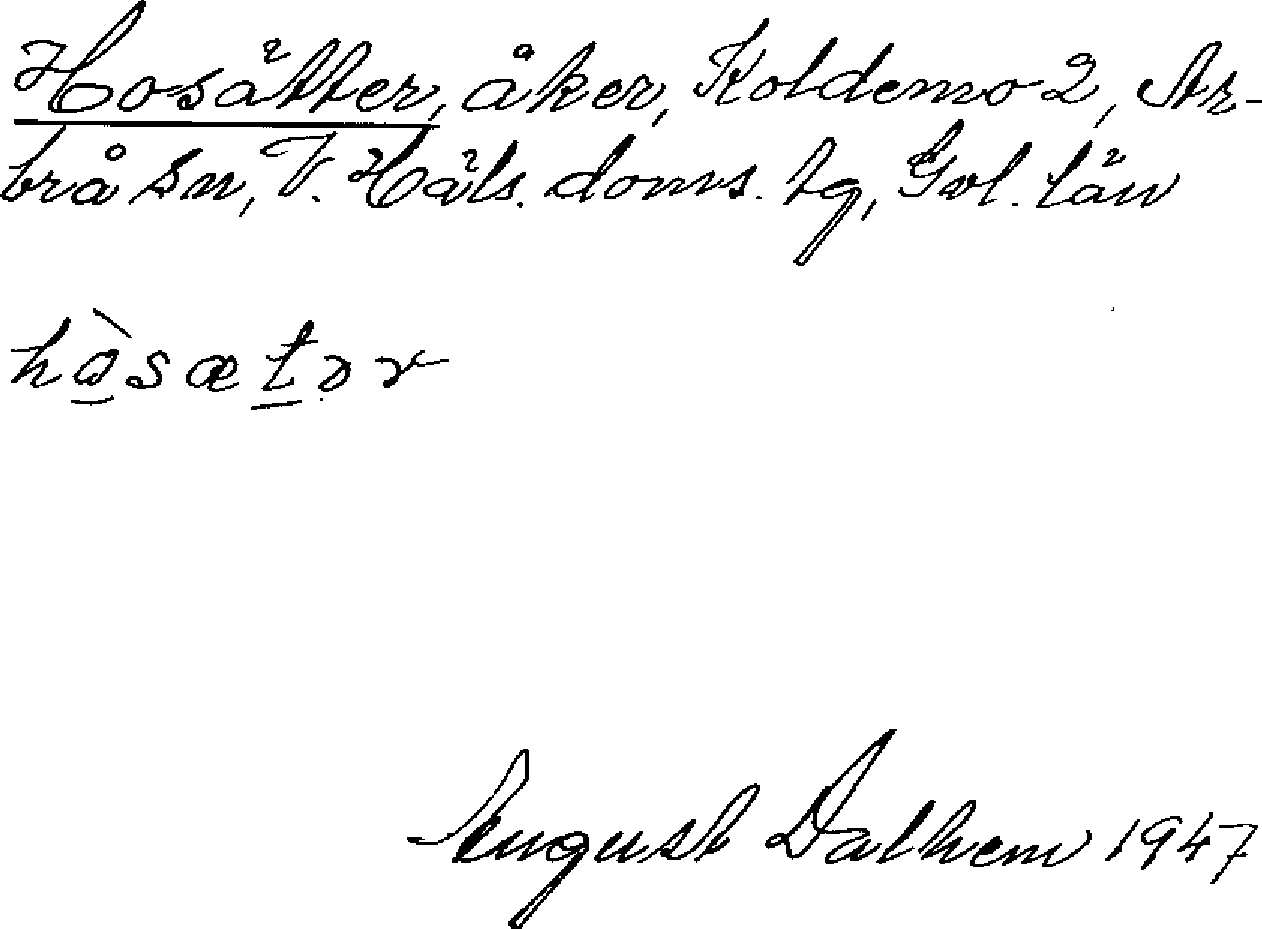 Hosätter, åker, Koldemo 2, Ar-
brå sn, V. Häls. doms. tg, Gvl. län
hòsætər
August Dalhem 1947